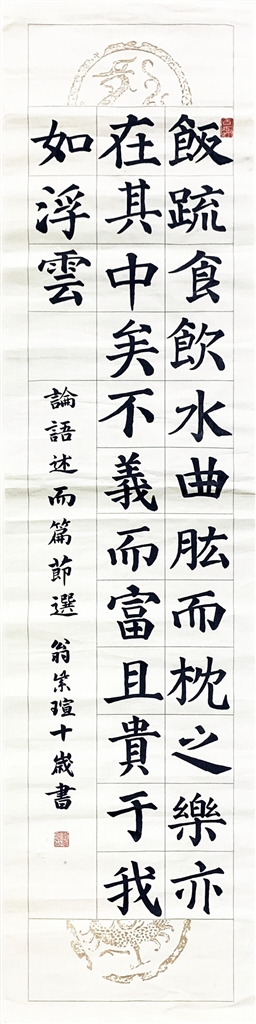 飯疏食飲水曲肱而枕之樂亦
在其中矣不義而富且貴于我
如浮雲
論語述而篇節選 翁紫瑄十歲書